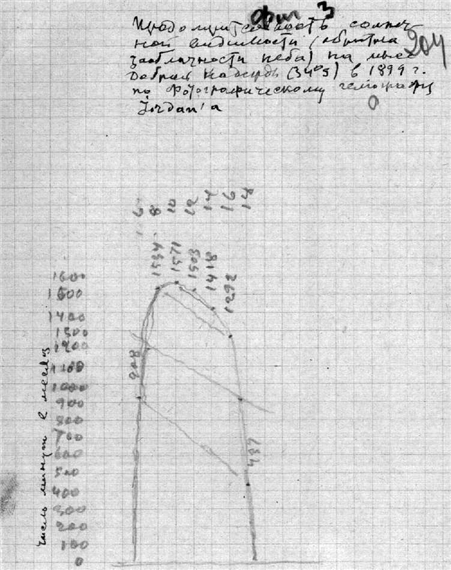 фиг 3
204
Продолжительность солнеч
ной видимости (обратна
заоблачности неба) на мысе
Доброй Надежды (34°S) в 1899 г.
по фотографическому гелиографу
Jordan'a
6 8 10 12 14 16 18
1534 1571 1503 1418 1292
1600
1500
1400
1300
1200
1100
1000
900
800
700
600
500
400
300
200
100
0
908
487
число минут в месяц